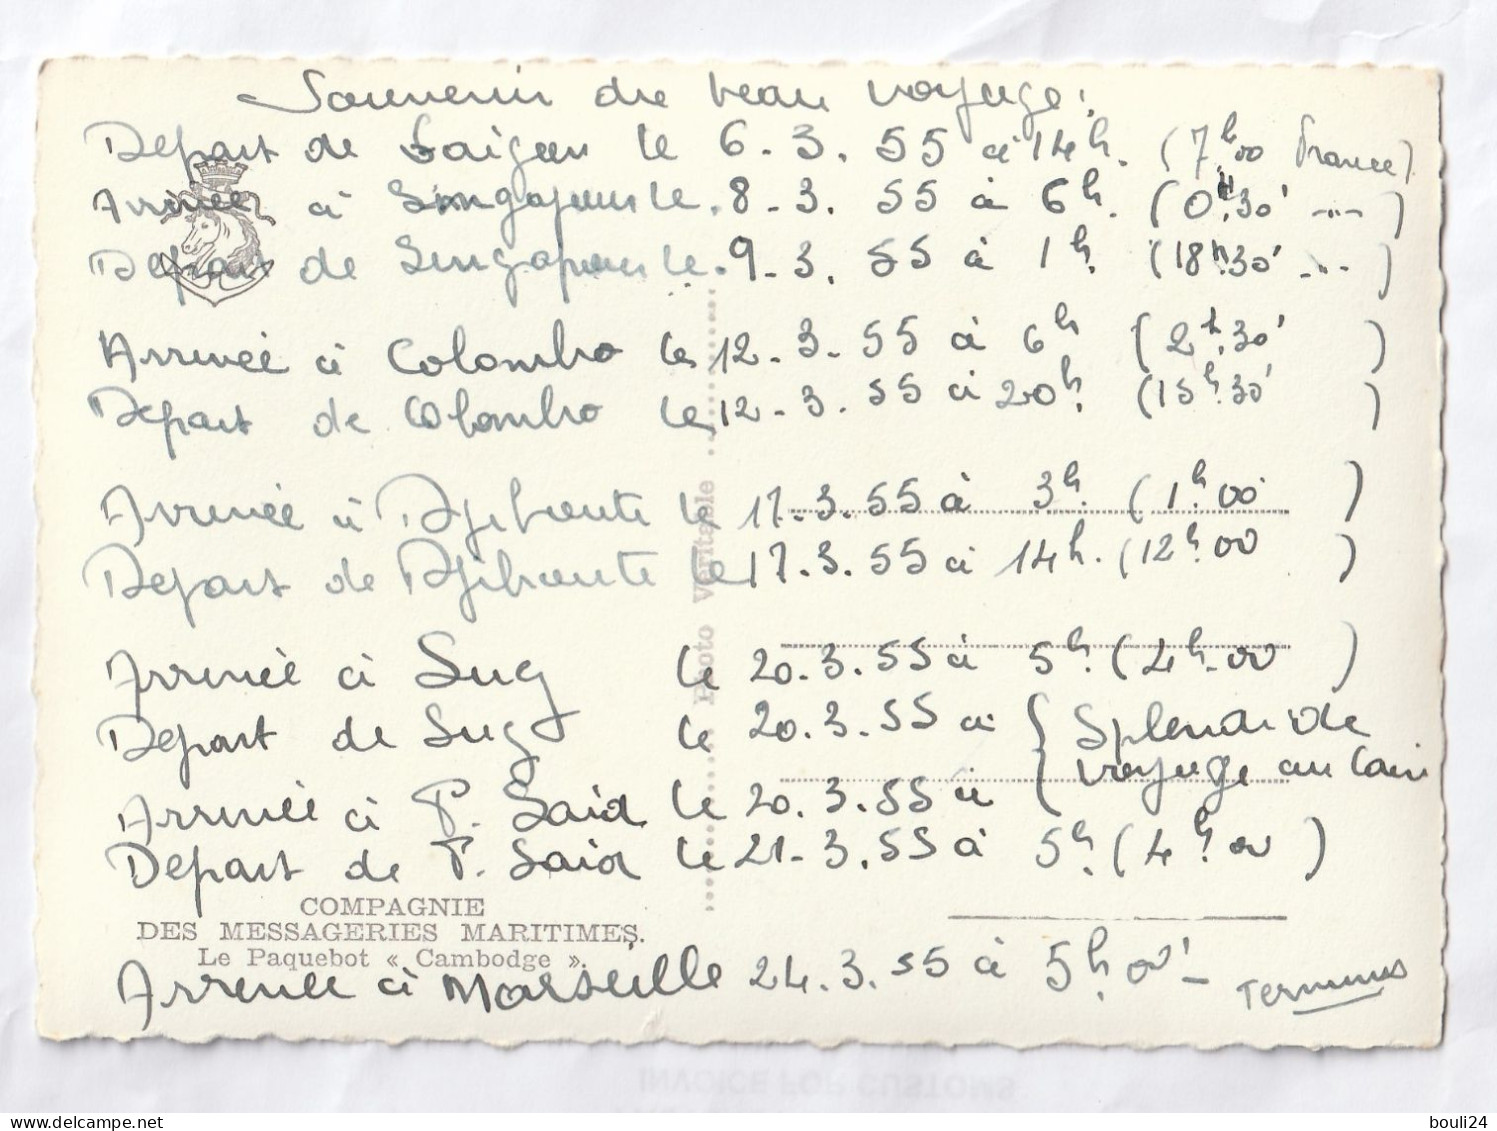 Souvenir du beau voyage :
Départ de Saigon le 6-3.55 à 14h. (7h00 France)
Arrivée à Singapour le 8-3.55 à 6h. (0H.30' ---)
Départ de Singapour le 9-3.55 à 1h. (18H30' ---)
Arrivée à Colombo le 12-3-55 à 6h (2h.30' )
Départ de Colombo le 12-3.55 à 20h. (15h.30' )
Arrivée à Djiboute le 17.3.55 à 3h. (1h.00' )
Départ de Djiboute le 17.3.55 à 14h. (12h.00 )
Arrivée à Sug le 20.3.55 à 5h. (4h.00 )
Départ de Sug le 20.3.55 à { Splendide
voyage au Cair
Arrivée à P. Said le 20.3.55 à
Départ de P. Said le 21-3.55 à 5h. (4h.00 )
Photo Véritable
COMPAGNIE
DES MESSAGERIES MARITIMES.
Le Paquebot « Cambodge ».
Arrivée à Marseille 24.3.55 à 5h.00' - Terminus
INVOICE FOR CUSTOMS
bouli24